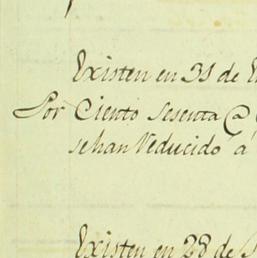 Existen en 31 de E
Por Ciento sesenta @
se han Reducido á
Existen en 28 de